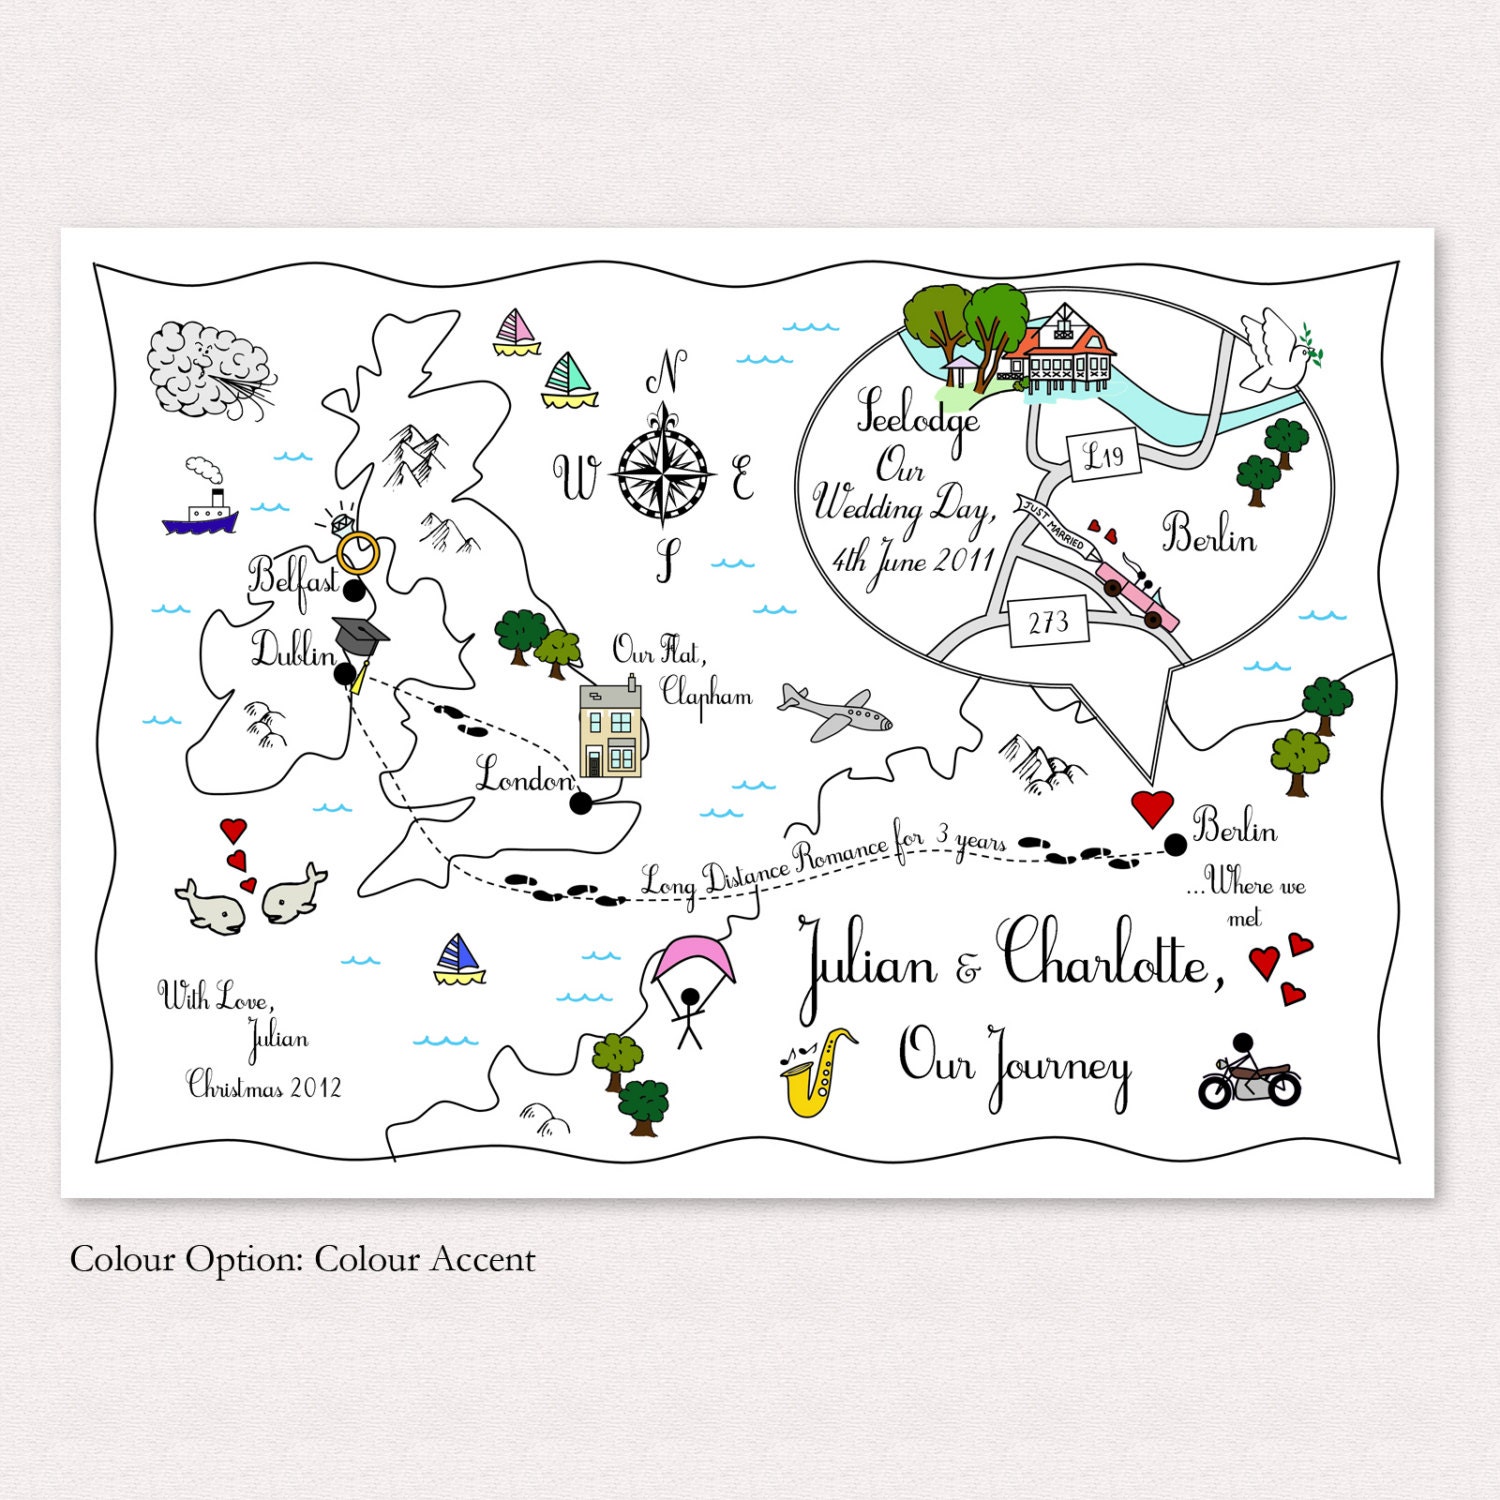 N
W
E
S
Seelodge
Our
Wedding Day,
4th June 2011
L19
JUST MARRIED
Berlin
273
Belfast
Dublin
Our Flat,
Clapham
London
Long Distance Romance for 3 years
Berlin
...Where we
met
Julian & Charlotte,
Our Journey
With Love,
Julian
Christmas 2012
Colour Option: Colour Accent